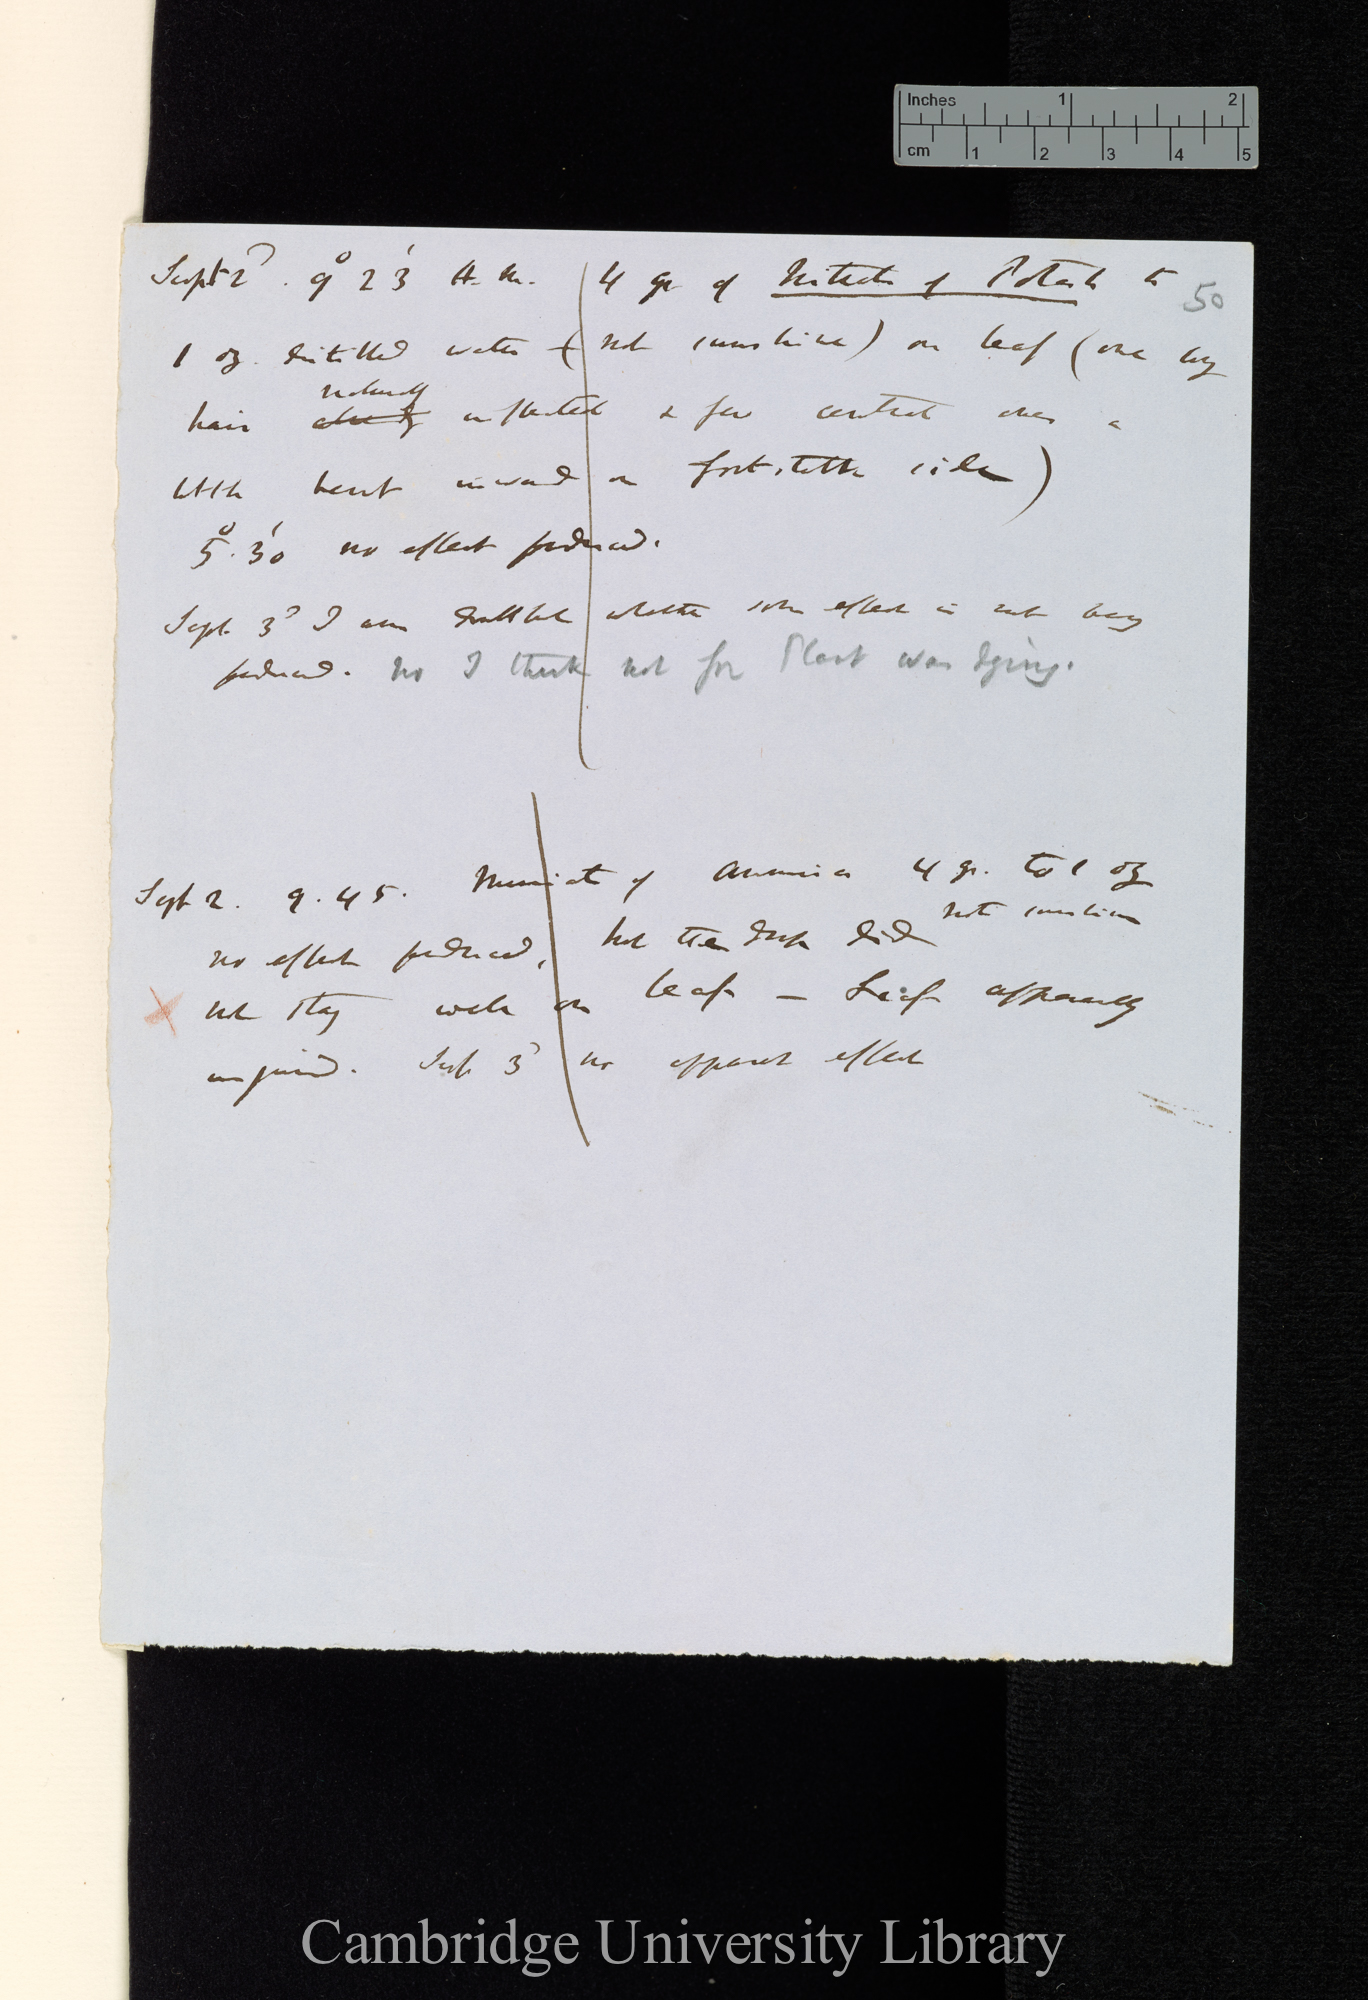 Inches 1 2
cm 1 2 3 4 5
50
Sept 2d. 9° 23' A.M. 4 gr of Nitrate of Potash to
1 oz. distilled water (not sunshine) on leaf (one long
hair naturally inflected & few central ones a
little bent inward on footstalk side)
5°. 30' no effect produced.
Sept. 3d I am doubtful whether some effect is not being
produced. No I think not for Plant was dying.
Sept 2. 9.45. Muriate of Ammonia 4 gr. to 1 oz
not sunshine
no effect produced, but the drop did
not stay well on leaf — Leaf apparently
uninjured. Sept 3d no apparent effect
Cambridge University Library